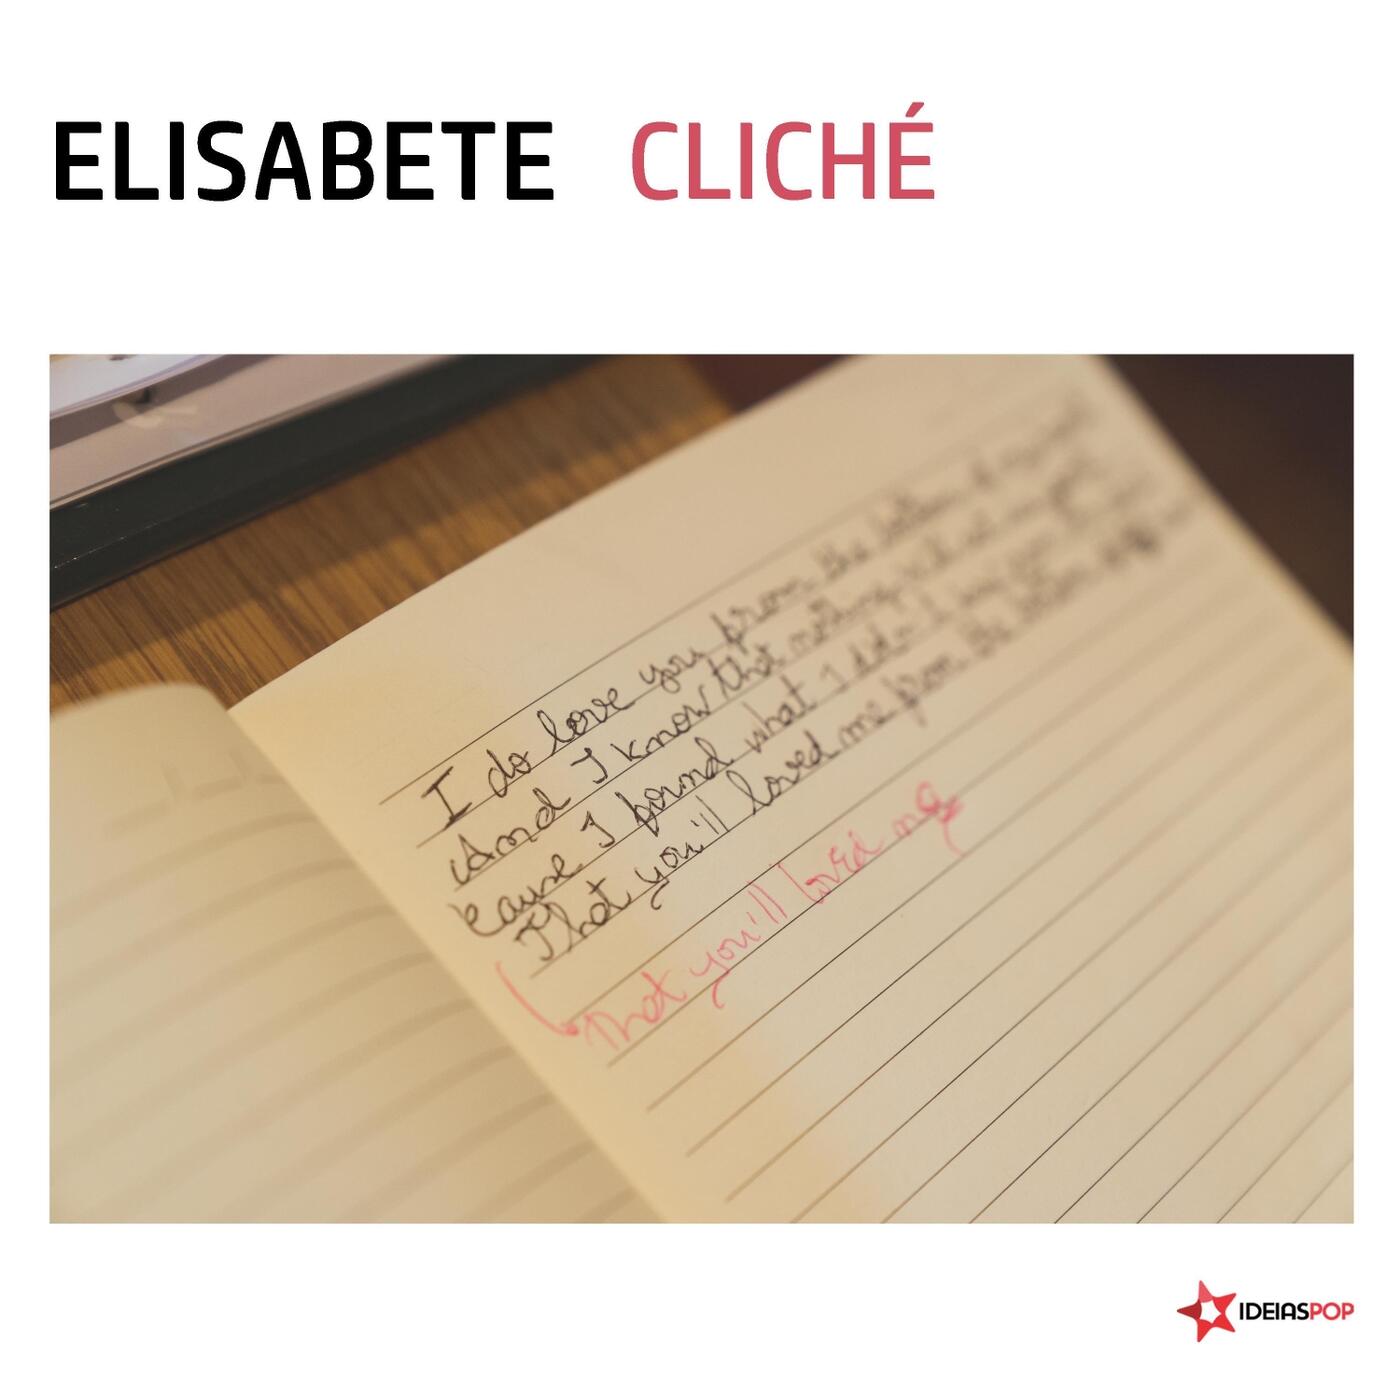 ELISABETE CLICHÉ
I do love you from the bottom of my
And I know that nothing will
'cause I found what I didn't
That you'll loved me from the bottom
That you'll loved me
IDEIASPOP